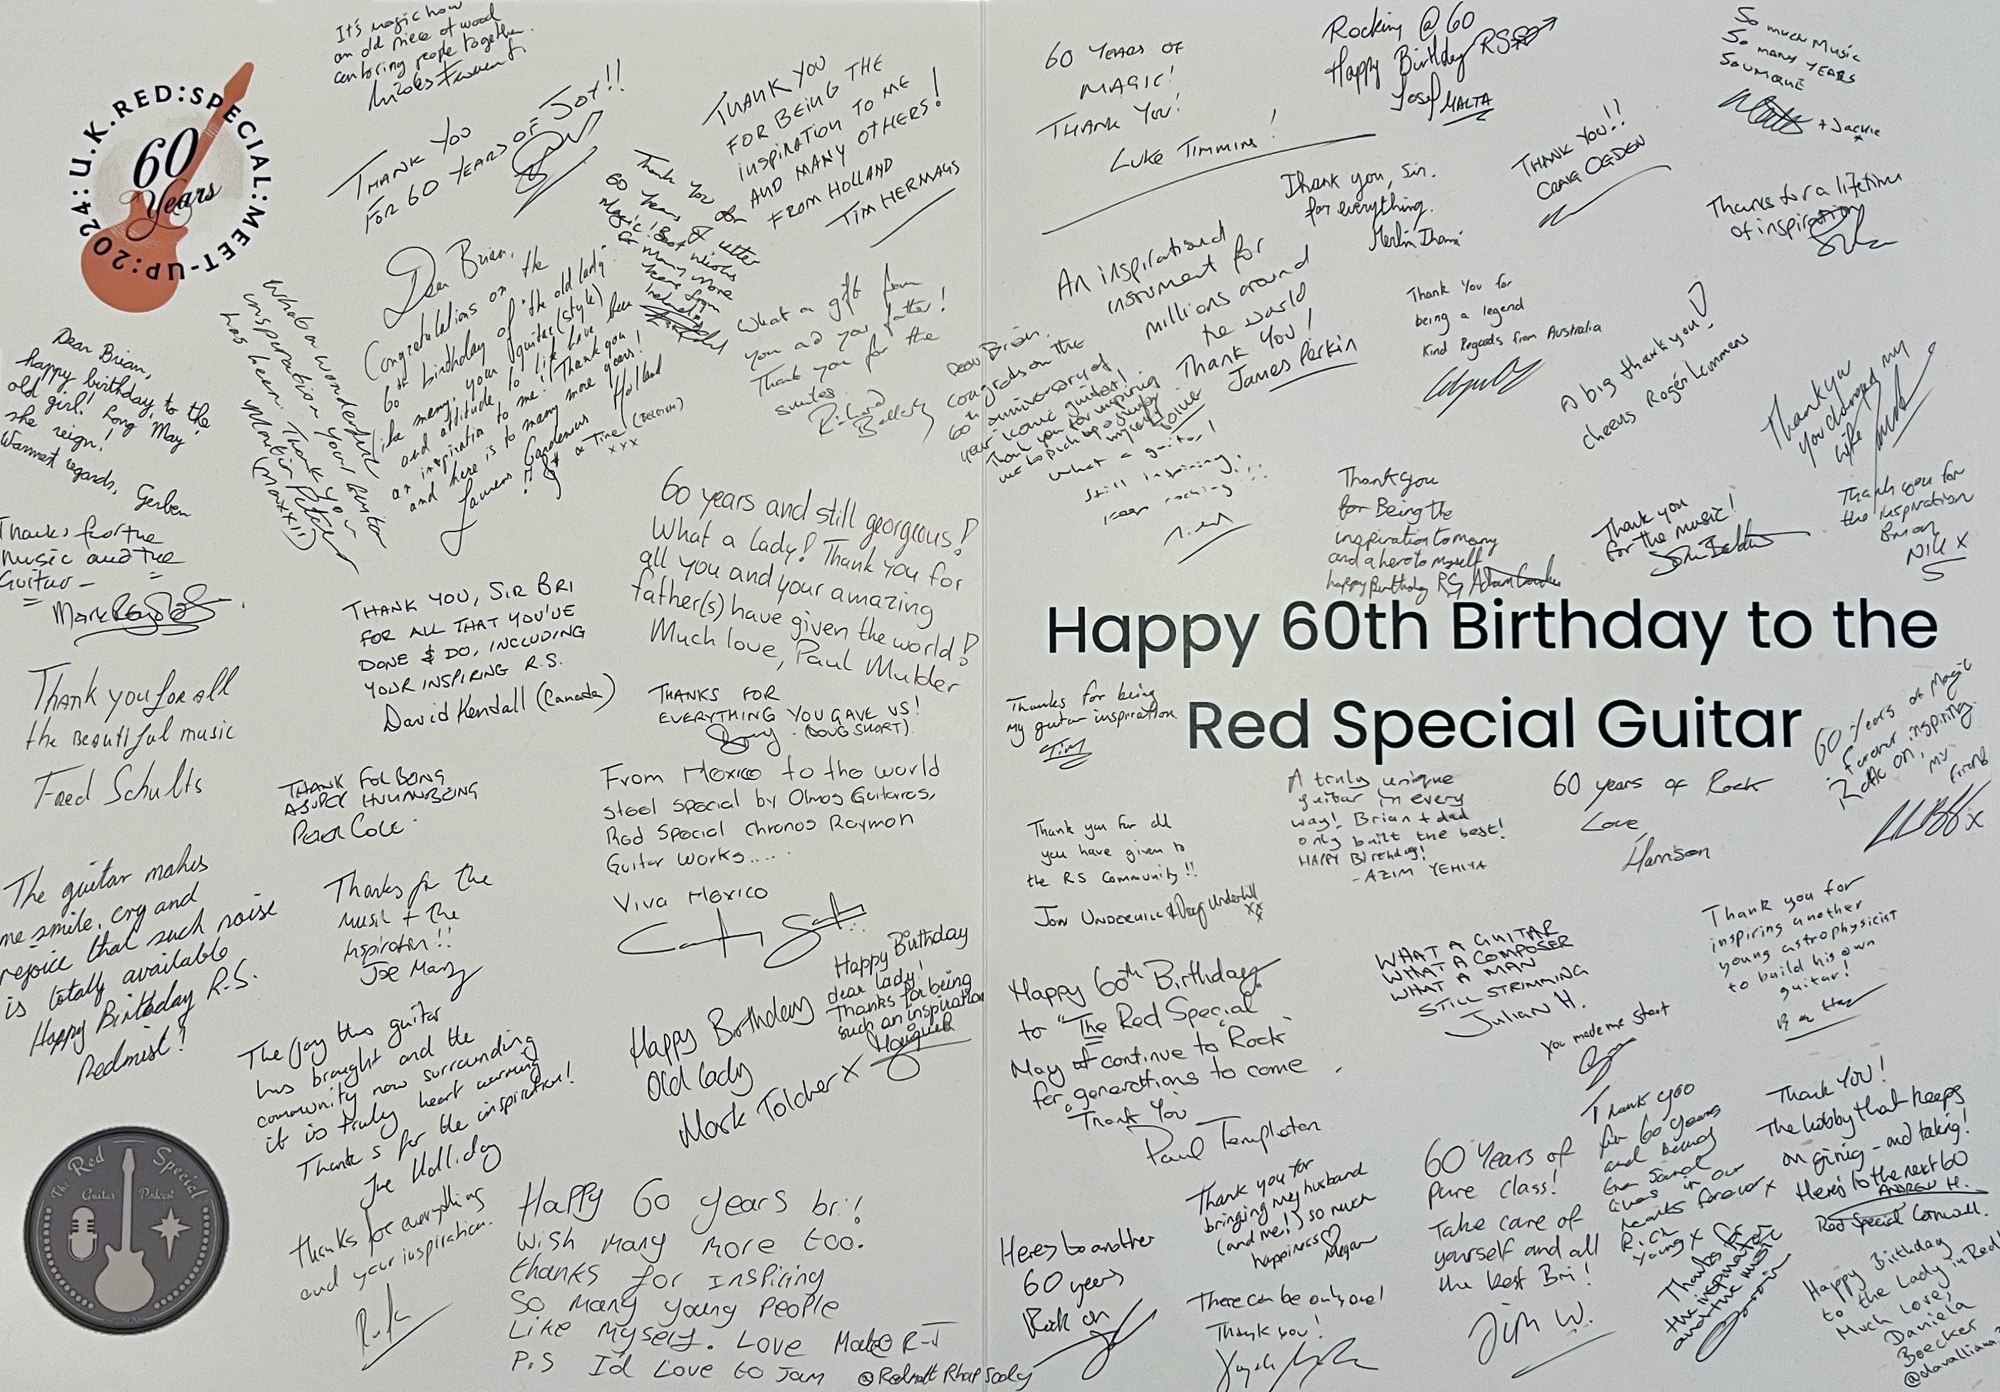 U.K.RED:SPECIAL:MEET-UP:2024:
60
Years
It's magic how
an old piece of wood
can bring people together.
THANK YOU
FOR 60 YEARS OF JOY!!
THANK YOU
FOR BEING THE
INSPIRATION TO ME
AND MANY OTHERS!
FROM HOLLAND
TIM HERMANS
Thank you for
60 Years of utter
Magic! Best wishes
for many more
years from
Ireland
Dear Brian,
Congratulations on the
60th birthday of "the old lady".
like many, your guitar (style)
and attitude to life have been
an inspiration to me! Thank you
and here is to many more years!
Laurens Holland
& Tine (BELGIUM)
xxx
What a gift from
you and your father!
Thank you for the
smiles.
Richard
What a wonderful
inspiration your guitar
has been. Thank you
Martin Peters
(Maxxii)
Dear Brian,
happy birthday, to the
old girl! Long May
she reign!
Warmest regards, Gerben
Thanks for the
music and the
Guitar -
Mark
Thank you for all
the Beautiful music
Fred Schults
THANK YOU, SIR BRI
FOR ALL THAT YOU'VE
DONE & DO, INCLUDING
YOUR INSPIRING R.S.
David Kendall (Canada)
60 years and still georgeous!
What a lady! Thank you for
all you and your amazing
father(s) have given the world!
Much love, Paul Mulder
THANKS FOR
EVERYTHING YOU GAVE US!
Doug (DOUG SHORT)
THANK FOR BEING
A SUPER HUMAN BEING
Peter Cole.
From Mexico to the world
steel special by Olmos Guitares,
Red Special chronos Raymon
Guitar Works.....
Viva Mexico
The guitar makes
me smile, cry and
rejoice that such noise
is totally available
Happy Birthday R.S.
Redmist!
Thanks for the
music + the
Inspiration!!
Joe
The joy this guitar
has brought and the
community now surrounding
it is truly heart warming
Thanks for the inspiration!
Joe Holliday
Happy Birthday
Old lady
Mark Tolcher x
Happy Birthday
dear lady!
Thanks for being
such an inspiration
The Red Special
Guitar Podcast
Thanks for everything
and your inspiration.
Happy 60 years bri!
Wish many more too.
thanks for inspiring
So many young people
Like myself. Love R-J
P.S I'd Love to jam
60 YEARS OF
MAGIC!
THANK YOU!
LUKE TIMMINS!
Rocking @ 60
Happy Birthday RS
Josef MALTA
So much Music
So many YEARS
So UNIQUE
Matt + Jackie
x
Thank you, Sir.
for everything.
THANK YOU!!
CRAIG OGDEN
Thanks for a lifetime
of inspiration
An inspirational
instrument for
millions around
the world
Thank You!
James Perkin
Thank You for
being a legend
Kind Regards from Australia
A big thank you!
cheers Roger Lemmens
Thank you
you changed my
life
Dear Brian.
congrats on the
60th anniversary of
your iconic guitar!
Thank you for inspiring
me to pick up a guitar
myself!
What a guitar!
Still inspiring.
Keep rocking!!!
Thank you
for Being the
inspiration to many
and a hero to myself
happy Birthday RS
Thank you
for the music!
Thank you for
the inspiration
Brian
Nik x
Happy 60th Birthday to the
Red Special Guitar
Thanks for being
my guitar inspiration
Tim
60 Years of Magic
forever inspiring.
Rock on, my friend
x
A truly unique
guitar in every
way! Brian + dad
only built the best!
HAPPY Birthday!
- AZIM YEHIYA
60 years of Rock
Love,
Harrison
Thank you for all
you have given to
the RS Community!!
JON UNDERHILL & Doug Underhill
xx
WHAT A GUITAR
WHAT A COMPOSER
WHAT A MAN
STILL STRIMMING
JULIAN H.
Thank you for
inspiring another
young astrophysicist
to build his own
guitar!
Happy 60th Birthday
to "The Red Special"
May it continue to "Rock"
for generations to come.
Thank You
Paul Templeton
You made me start
Thank you
for 60 years
and being
Rich
Young x
Thank You!
The hobby that keeps
on giving - and taking!
Here's to the next 60
ANDREW H.
Red Special Cornwall.
60 Years of
Pure Class!
Take care of
yourself and all
the best Bri!
Jim W.
Thank you for
bringing my husband
(and me!) so much
happiness♡
Megan
Here's to another
60 years
Rock on
There can be only one!
Thank you!
Thanks for
the inspiration
and the music
Happy Birthday
to the Lady in Red!
Much love,
Daniela
Boecker